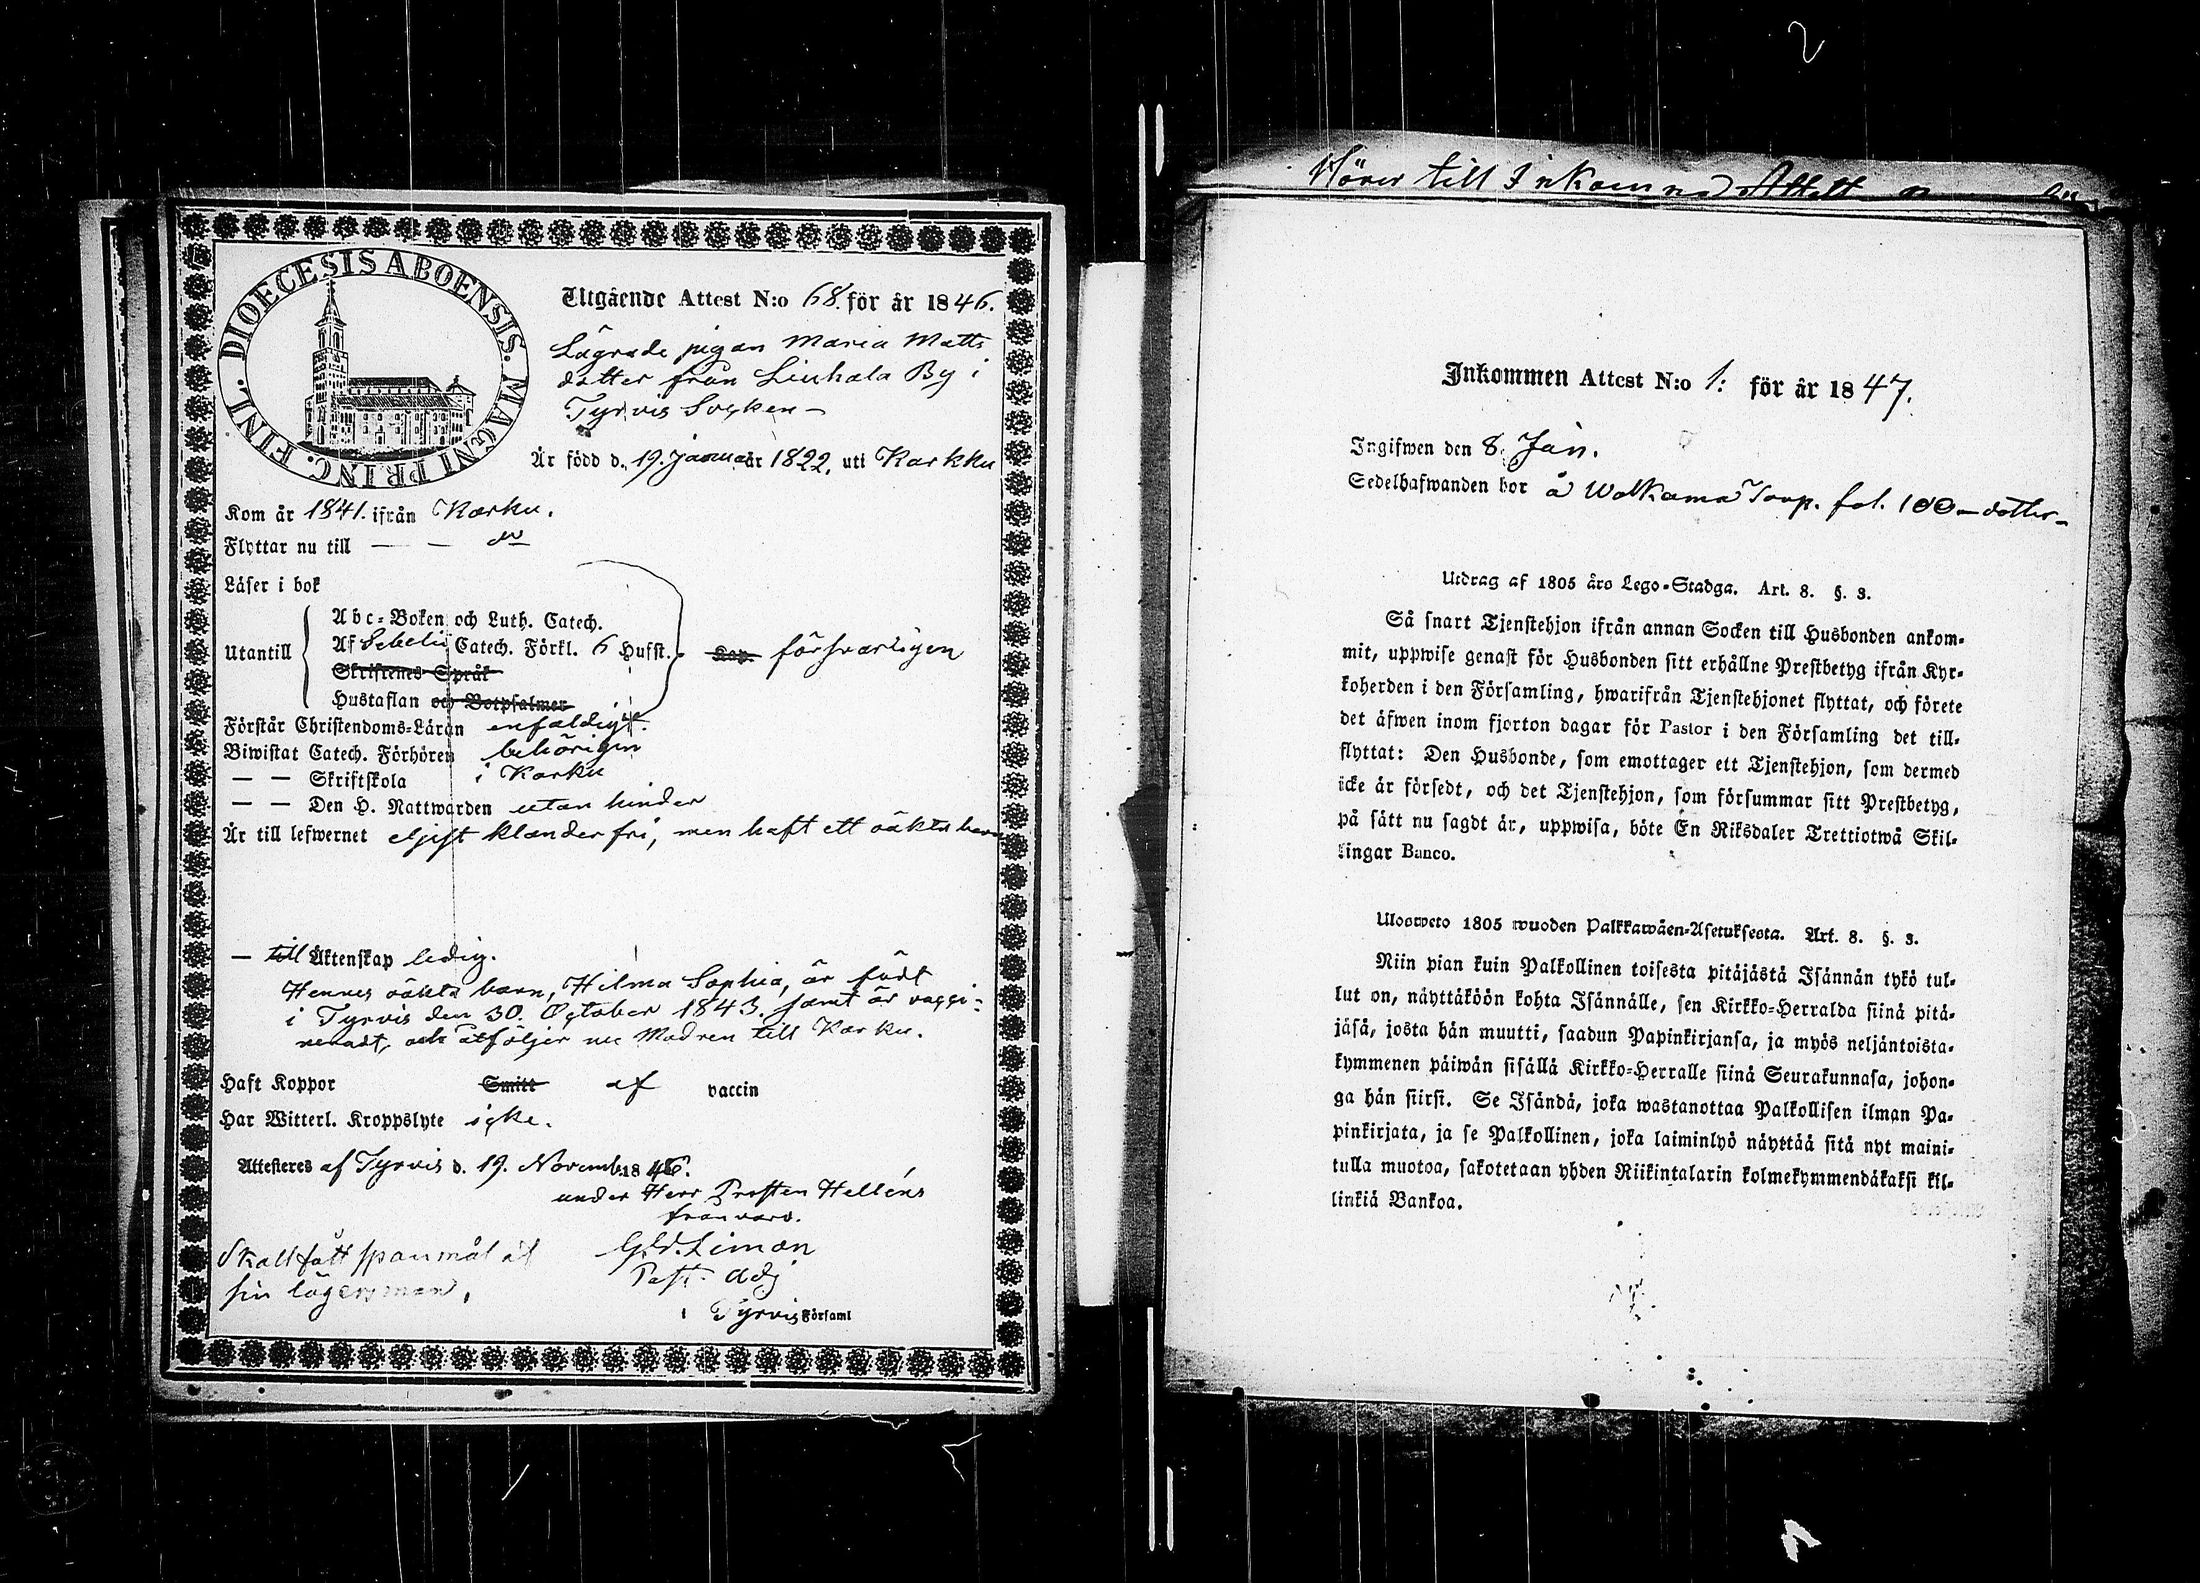 DIOECESIS ABOENSIS. MAGNI PRINC. FINL.
Utgående Attest N:o 68. för år 1846.
Lägrade pigan Maria Matts
dotter från Liuhala By i
Tyrvis Socken –
Är född d. 19. Januar år 1822, uti Karkku
Kom år 1841. ifrån Karku.
Flyttar nu till — — do
Läser i bok
Abc-Boken och Luth. Catech.
Utantill Af Sebelii Catech. Förkl. 6 Hufst. Kap. försvarligen
Skriftenes Språk
Hustaflan och Botpsalmer
Förstår Christendoms-Läran enfaldigt.
Biwistat Catech. Förhören behörigen
— — Skriftskola i Karku
— — Den H. Nattwarden utan hinder
Är till lefwernet eljest klanderfri, men haft ett oäkta barn
— till Äktenskap ledig.
Hennes oäkta barn, Hilma Sophia, är född
i Tyrvis den 30. October 1843. samt är vacci-
neradt, och åtföljer nu Modren till Karku.
Haft Koppor Smitt af vaccin
Har Witterl. Kroppslyte icke.
Attesteras af Tyrvis d. 19. Novemb. 1846.
under Herr Prosten Helléns
frånvaro.
Limon
Past. Adj
i Tyrvis Församl
Skall fått spanmål af
sin lägersman.
2
Hörer till Inkomna Attest
Inkommen Attest N:o 1: för år 1847.
Ingifwen den 8. Jan.
Sedelhafwanden bor å Walkama Torp. fol. 100 — dotter —
Utdrag af 1805 års Lego-Stadga. Art. 8. §. 3.
Så snart Tjenstehjon ifrån annan Socken till Husbonden ankom-
mit, uppwise genast för Husbonden sitt erhållne Prestbetyg ifrån Kyr-
koherden i den Församling, hwarifrån Tjenstehjonet flyttat, och förete
det äfwen inom fjorton dagar för Pastor i den Församling det till-
flyttat: Den Husbonde, som emottager ett Tjenstehjon, som dermed
icke är försedt, och det Tjenstehjon, som försummar sitt Prestbetyg,
på sätt nu sagdt är, uppwisa, böte En Riksdaler Trettiotwå Skil-
lingar Banco.
Ulosweto 1805 wuoden Palkkawäen-Asetuksesta. Art. 8. §. 3.
Niin pian kuin Palkollinen toisesta pitäjästä Isännän tykö tul-
lut on, näyttäköön kohta Isännälle, sen Kirkko-Herralda siinä pitä-
jäsä, josta hän muutti, saadun Papinkirjansa, ja myös neljäntoista-
kymmenen päiwän sisällä Kirkko-Herralle siinä Seurakunnasa, johon-
ga hän siirsi. Se Isändä, joka wastanottaa Palkollisen ilman Pa-
pinkirjata, ja se Palkollinen, joka laiminlyö näyttää sitä nyt maini-
tulla muotoa, sakotetaan yhden Riikintalarin kolmekymmendäkaksi kil-
linkiä Bankoa.